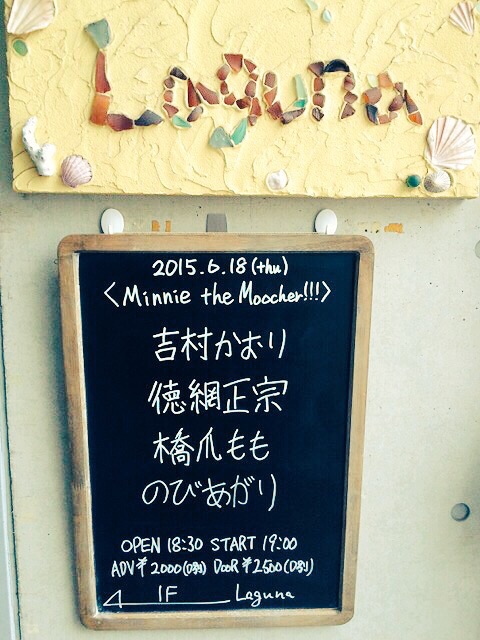 Laguna
2015.6.18(thu)
<Minnie the Moocher!!!>
吉村かおり
徳網正宗
橋爪もも
のびあがり
OPEN 18:30 START 19:00
ADV ¥2000(D別) DooR ¥2500(D別)
1F Laguna